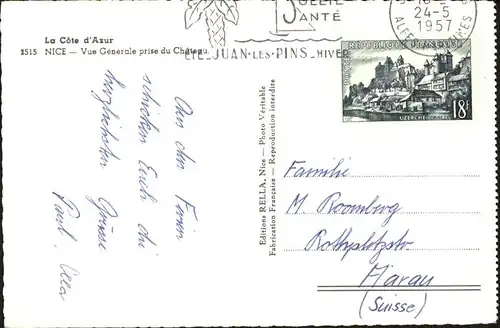 La Côte d'Azur
2515 NICE — Vue Générale prise du Château.
SANTÉ
24-5
1957
JUAN-LES-PINS
HIVER
RÉPUBLIQUE FRANÇAISE
UZERCHE
18F
Aus den Ferien
schicken Euch die
herzlichsten Grüsse
Paul, Ella
Editions RELLA, Nice — Photo Véritable
Fabrication Française — Reproduction interdite
Familie
M. Roomberg
Rothpletzstr.
Aarau
(Suisse)